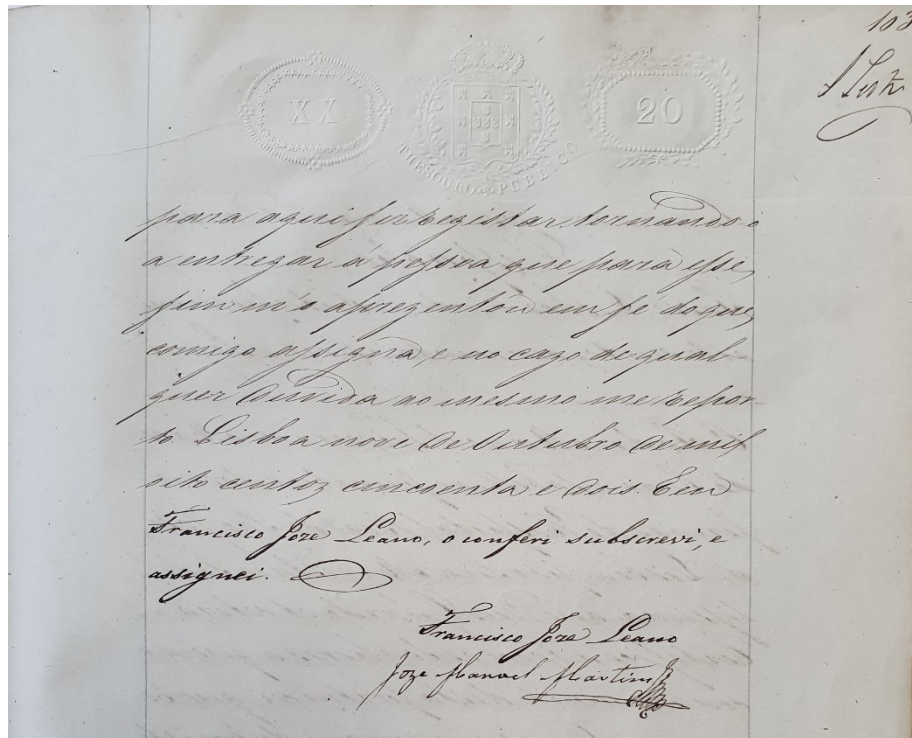 103
XX
THESOURO PUBLICO
20
para aqui fiz registar tornando o
a entregar á pessoa que para esse
fim m'o aprezentou em fé do que,
comigo assigna, e no cazo de qual-
quer duvida ao mesmo me repor-
to. Lisboa nove de Outubro de mil
oito centos cincoenta e dois. E eu
Francisco Joze Leano, o conferi subscrevi, e
assignei.
Francisco Joze Leano
Joze Manoel Martins